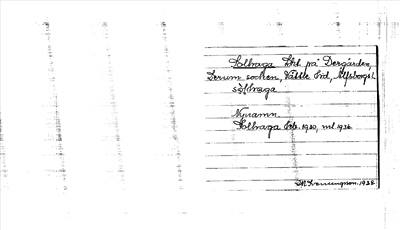 Solbraga Lht. på Dergården,
Lerum socken, Vättle hd, Älfsborgs l.
sɷlbraga
Nynamn.
Solbraga Ortb. 1930, rul 1936.
1938